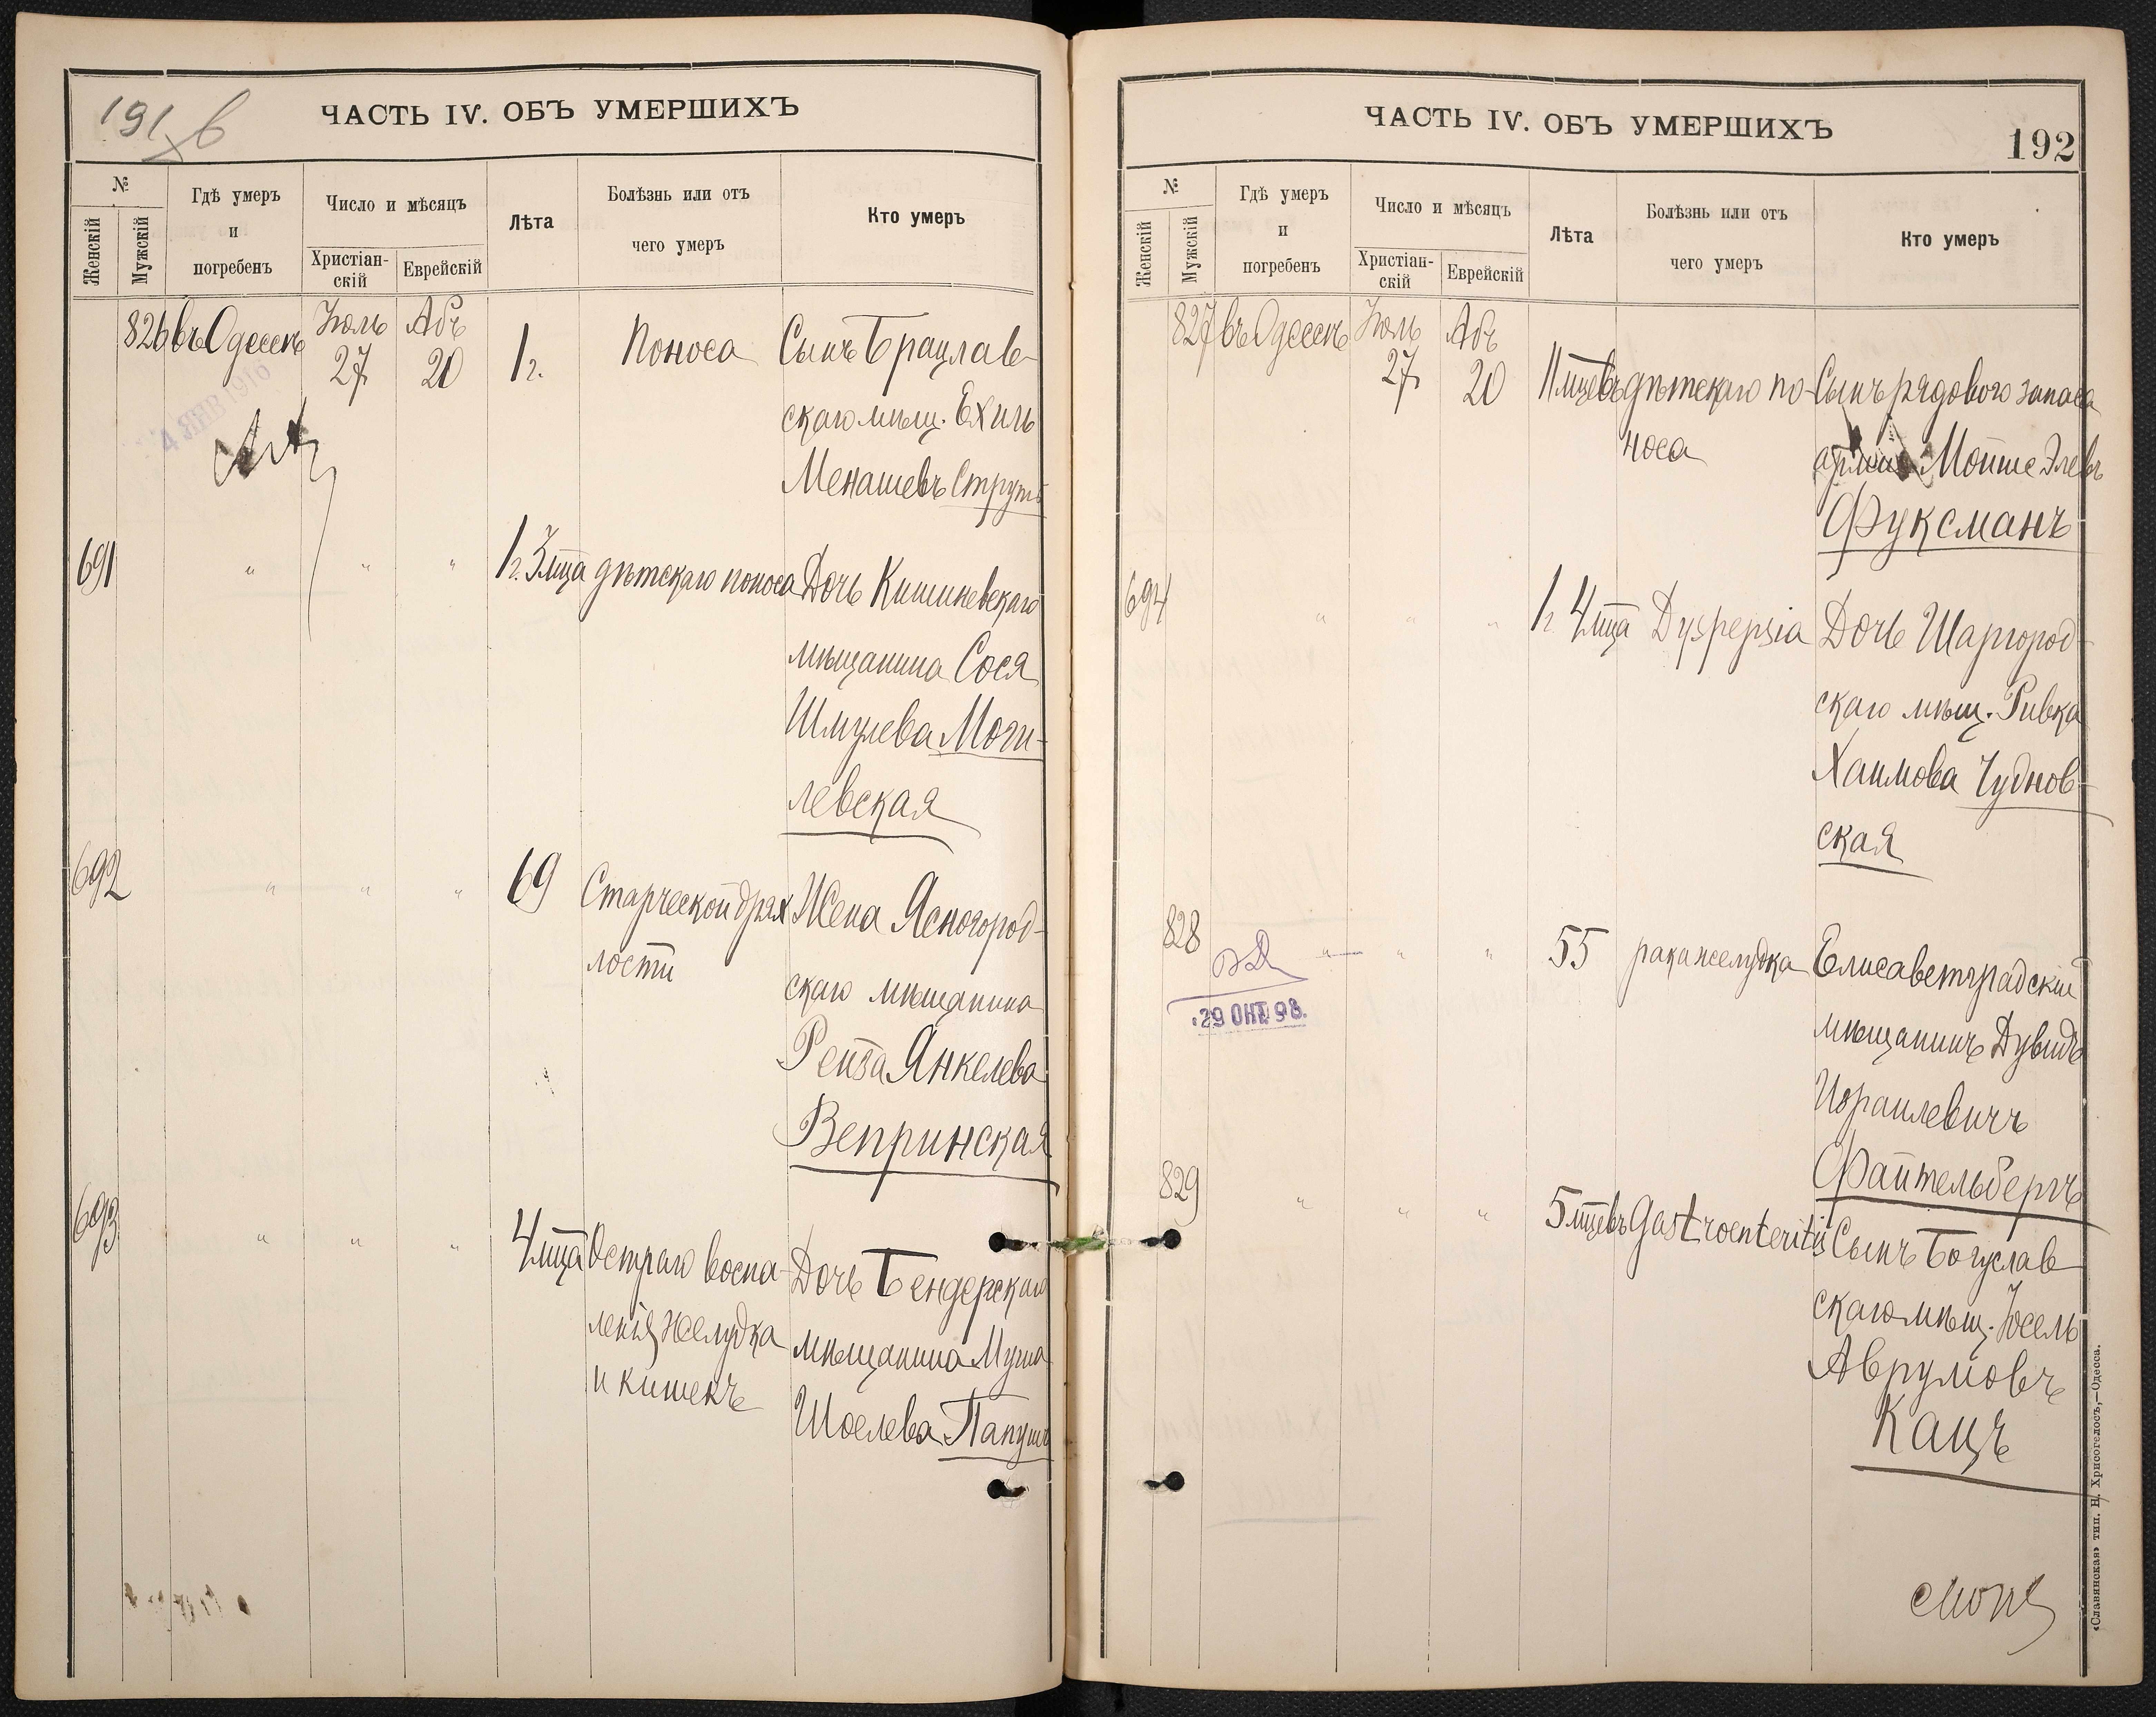 191 в
ЧАСТЬ IV. ОБЪ УМЕРШИХЪ
№
Женскій
Мужскій
Гдѣ умеръ
и
погребенъ
Число и мѣсяцъ
Христіан-
скій
Еврейскій
Лѣта
Болѣзнь или отъ
чего умеръ
Кто умеръ
826 въ Одессѣ Іюль 27 Абъ 20 1 г. Поноса Сынъ Брацлав-
скаго мѣщ. Ехиль
Менашевъ Струль
4 ЯНВ 1916
691 " " " 1 г. 3 мца дѣтскаго поноса Дочь Кишиневскаго
мѣщанина Сося
Шмулева Моги-
левская
692 " " " 69 Старческой дрях Жена Ясногород-
лости
скаго мѣщанина
Рейза Янкелева
Вепринская
693 " " " 4 мца Остраго воспа- Дочь Бендерскаго
ленія желудка мѣщанина Муша
и кишекъ
Шоелева Папуш
ЧАСТЬ IV. ОБЪ УМЕРШИХЪ
192
№
Женскій
Мужскій
Гдѣ умеръ
и
погребенъ
Число и мѣсяцъ
Христіан-
скій
Еврейскій
Лѣта
Болѣзнь или отъ
чего умеръ
Кто умеръ
827 въ Одессѣ Іюль 27 Абъ 20 11 мцевъ дѣтскаго по- Сынъ рядового запаса
носа арміи Мойше Элевъ
Фуксманъ
694 " " " 1 г. 4 мца Dyspepsia Дочь Шаргород-
скаго мѣщ. Ривка
Хаимова Чуднов-
ская
828 " " " 55 рака желудка Елисаветградскій
29 ОКТ 98.
мѣщанинъ Дувидъ
Израилевичъ
Файтельбергъ
829 " " " 5 мцевъ Gastroenteritis Сынъ Богуслав
скаго мѣщ. Іосель
Аврумовъ
Кацъ
«Славянская» тип. Н. Хрисогелосъ,—Одесса.